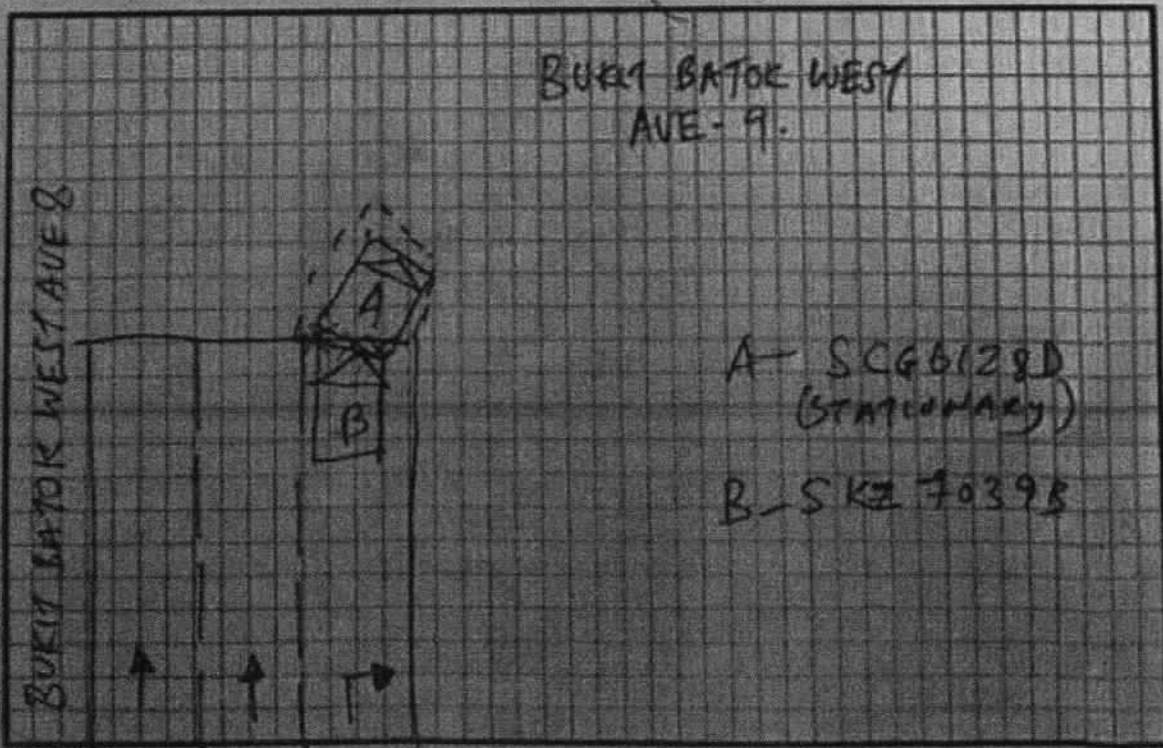 BUKIT BATOK WEST
AVE-9.
BUKIT BATOK WEST AVE 8
A
B
A - SCG6128D
(STATIONARY)
B - SKZ 7039B